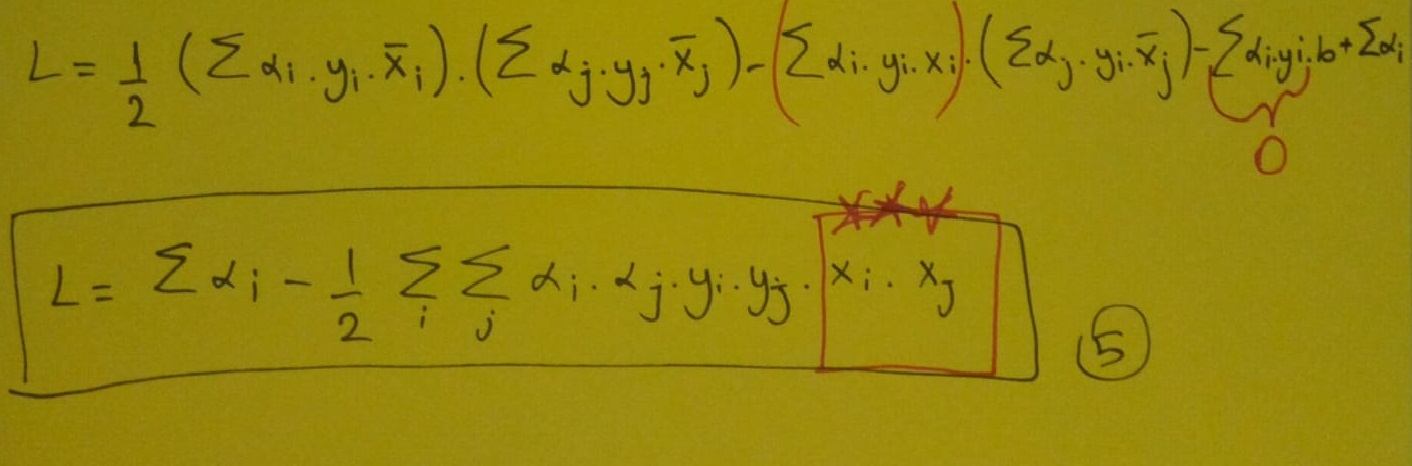 L = 1/2 (Σ αi . yi . x̄i) . (Σ αj . yj . x̄j) - (Σ αi . yi . xi) . (Σ αj . yi . x̄j) - Σ αi . yi . b + Σ αi
0
L = Σ αi - 1/2 Σi Σj αi . αj . yi . yj . xi . xj
5